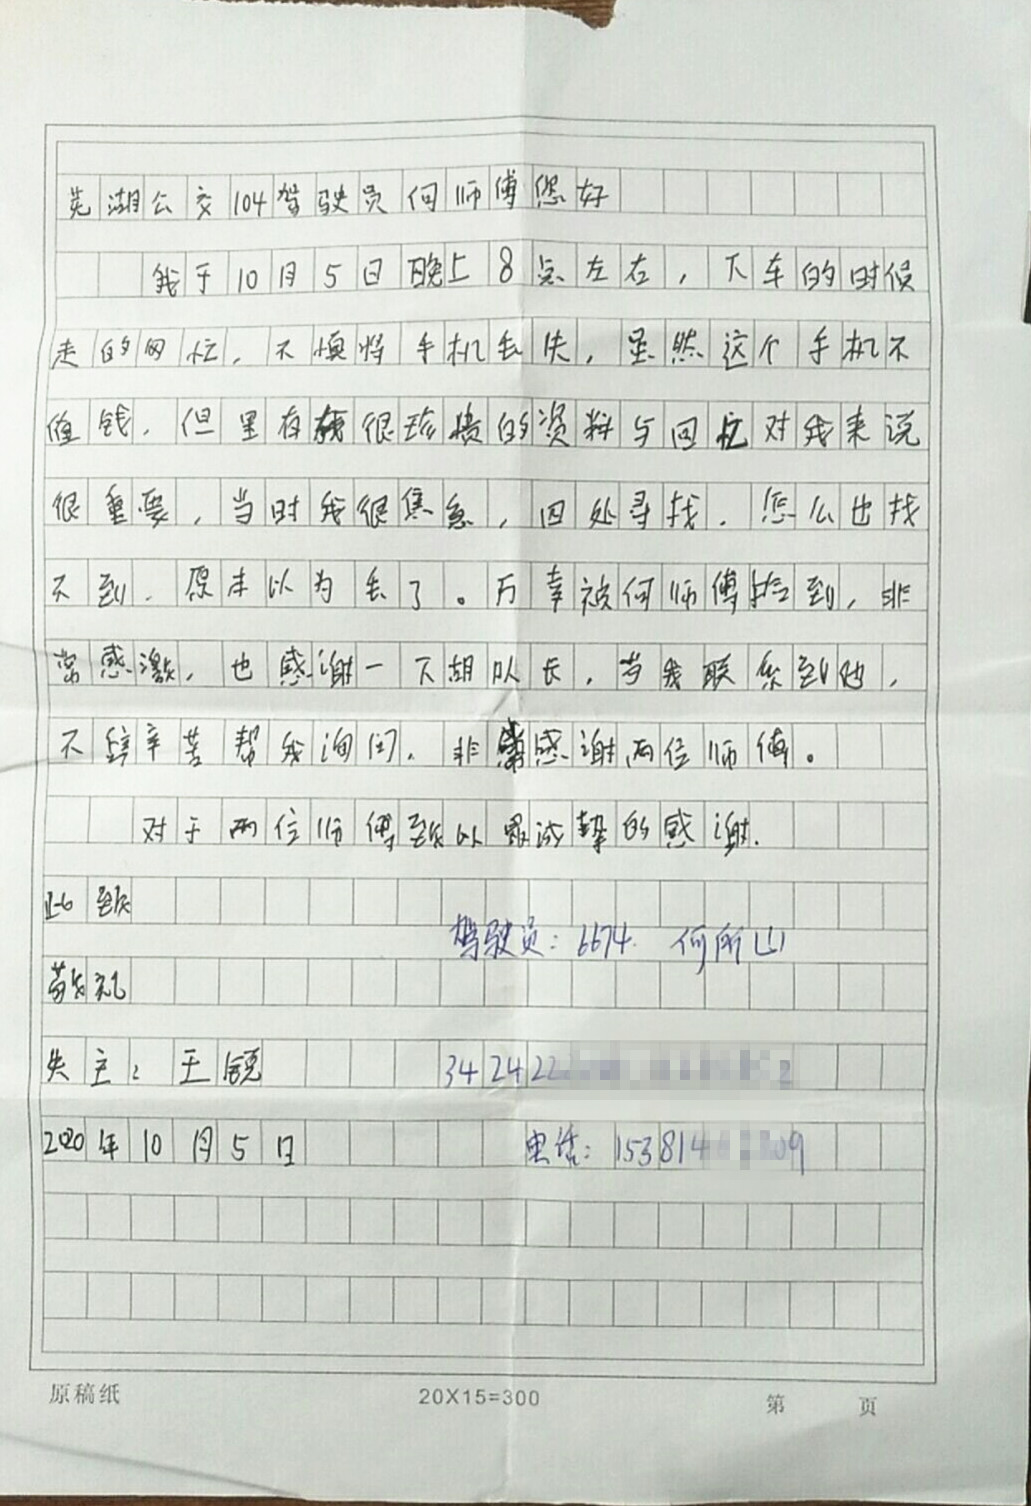 芜湖公交104驾驶员何师傅您好
我于10月5日晚上8点左右，下车的时候
走的匆忙，不慎将手机丢失，虽然这个手机不
值钱，但里存很珍贵的资料与回忆对我来说
很重要，当时我很焦急，四处寻找，怎么也找
不到，原本以为丢了。万幸被何师傅捡到，非
常感激，也感谢一下胡队长，当我联系到他，
不辞辛苦帮我询问，非常感谢两位师傅。
对于两位师傅致以最诚挚的感谢.
此致
驾驶员：6674. 何所山
敬礼
失主：王 342422
2020年10月5日 电话：153814 09
原稿纸 20X15=300 第 页